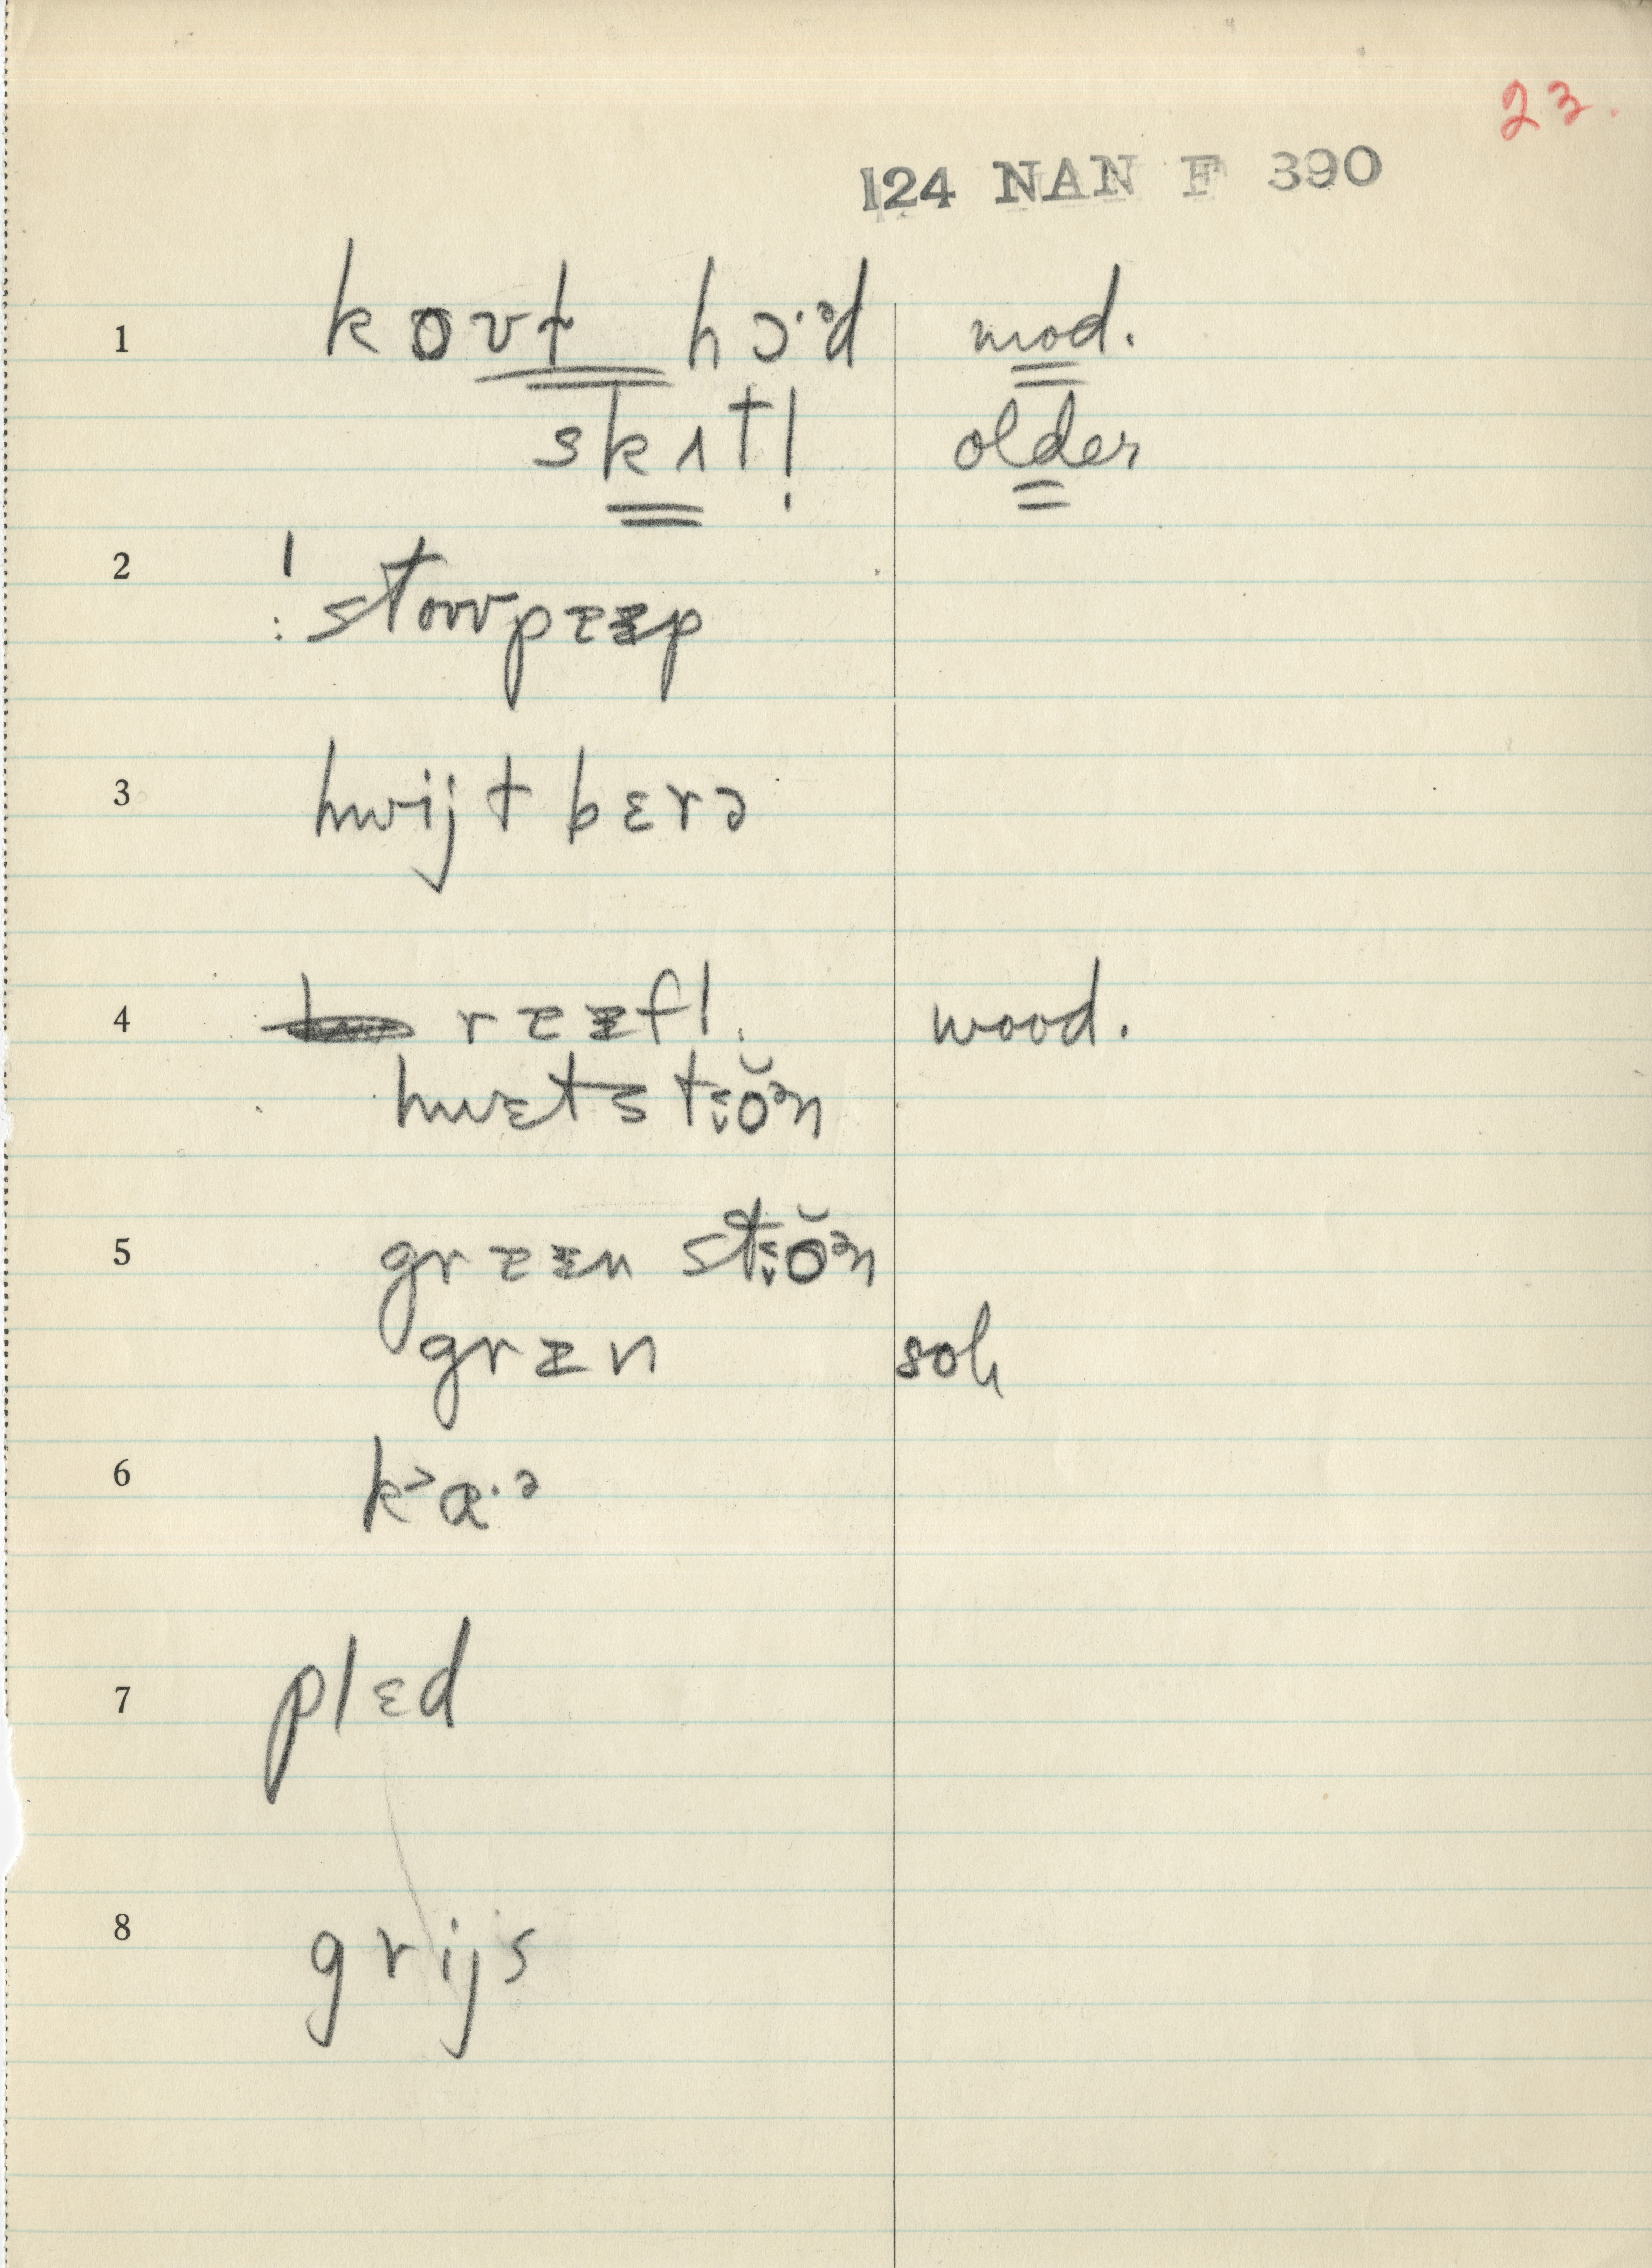 23.
124 NAN F 390
1 kout hɔ·ᵊd mod.
skɪt! older
2 stouupɪɪp
3 hwijtbɛrə
4 rɪɪfl. wood.
hwɛtstɵ̆ᵊn
5 grɪɪn stɵ̆ᵊn
grɪn
6 k>a·ᵊ
7 plɛd
8 grijs